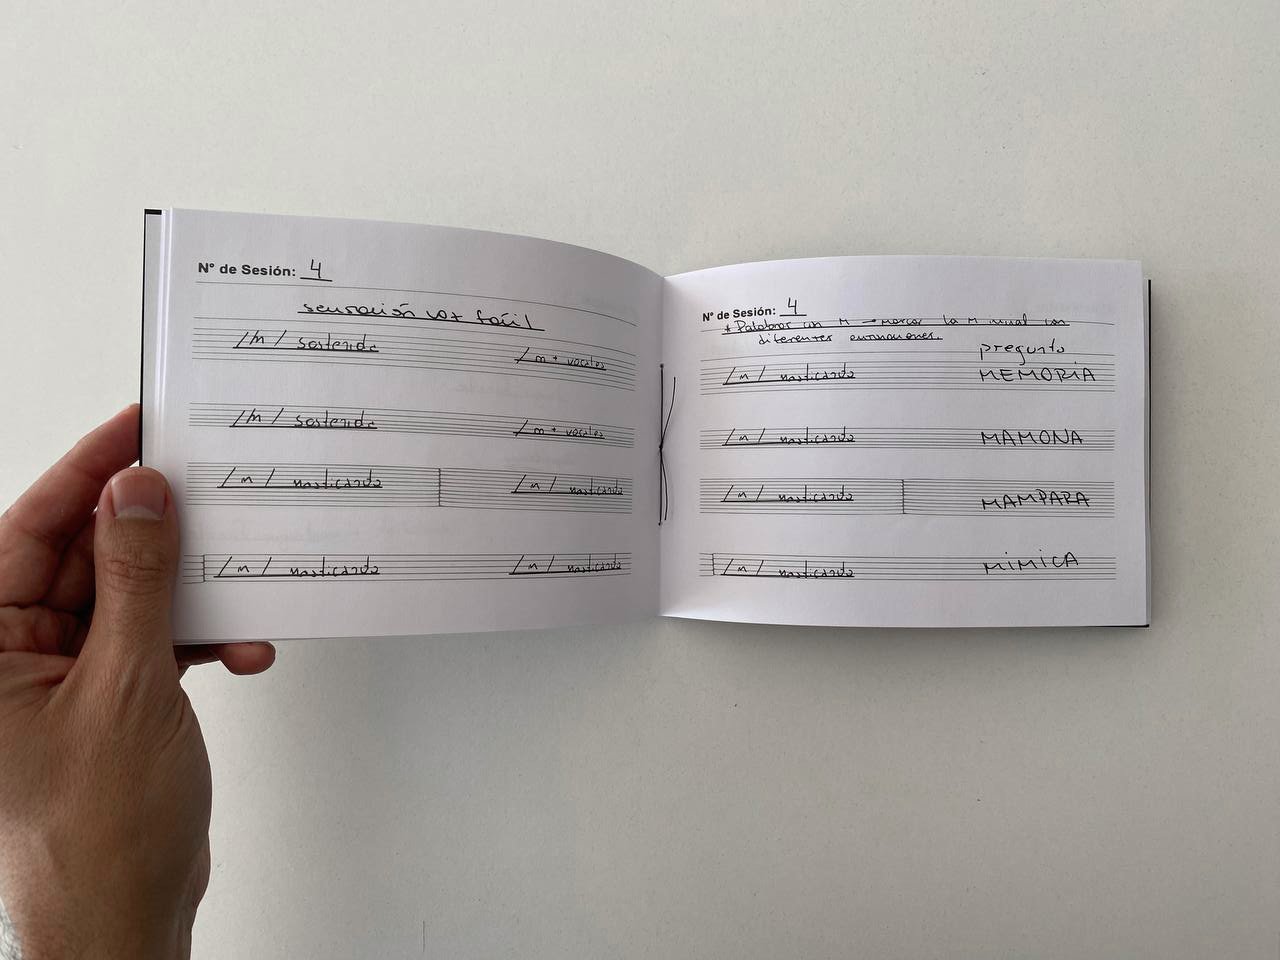 Nº de Sesión: 4
sensación voz fácil
/m/ sostenida
/m + vocales
/m/ sostenida
/m + vocales
/m/ masticando
/m/ masticando
/m/ masticando
/m/ masticando
Nº de Sesión: 4
* Palabras con M → marcar la M inicial con
diferentes entonaciones.
pregunta
/m/ masticando
MEMORIA
/m/ masticando
MAMONA
/m/ masticando
MAMPARA
/m/ masticando
MIMICA